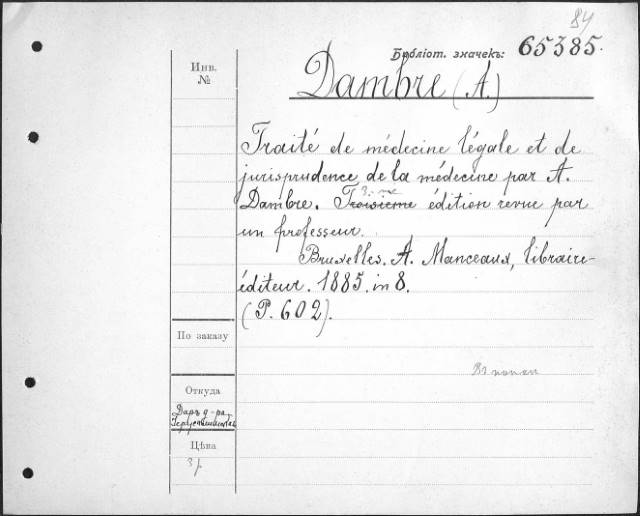 84
Библіот. значекъ: 65385.
Инв.
№
Dambre (A.)
Traité de médecine légale et de
jurisprudence de la médecine par A.
3-me
Dambre. Troisieme édition revue par
un professeur.
Bruxelles. A. Manceaux, libraire-
éditeur. 1885. in 8.
(P. 602).
По заказу
Откуда
Даръ д-ра
Цѣна
3 р.